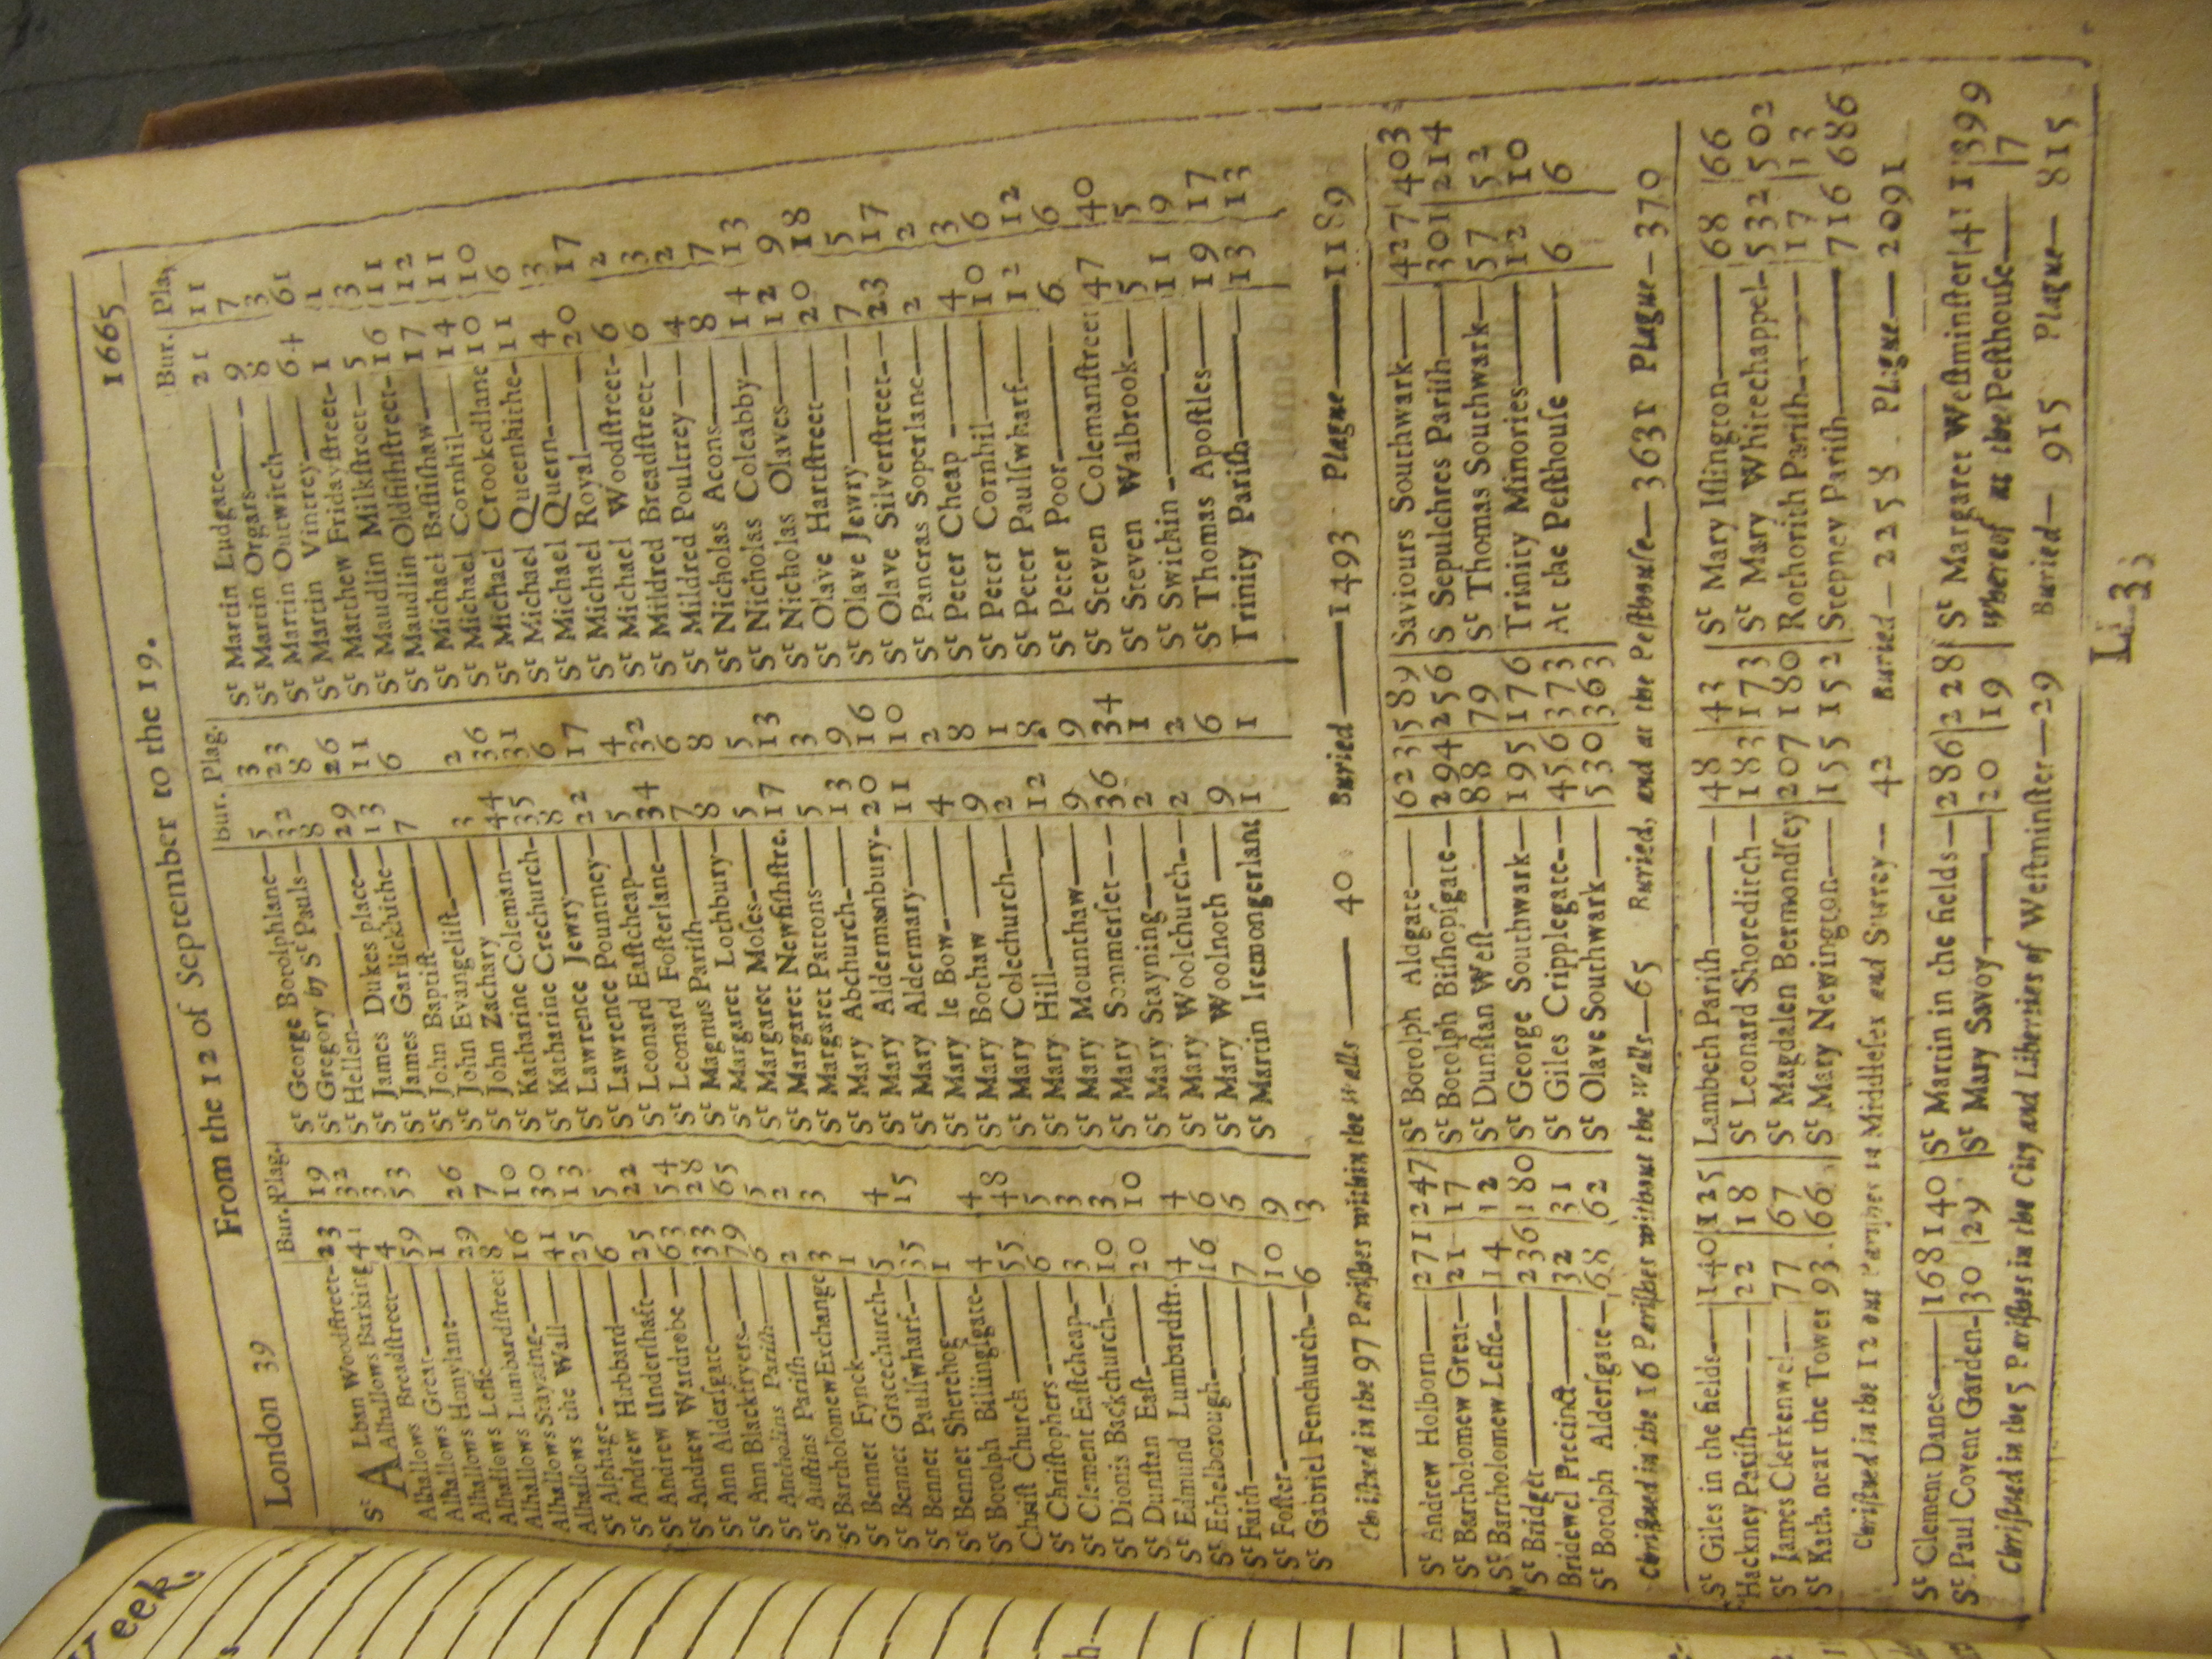 London 39 From the 12 of September to the 19. 1665
Bur. Plag.
St ALban Woodſtreet 23 19
Alhallows Barking 41 32
Alhallows Breadſtreet 4 3
Alhallows Great 59 53
Alhallows Honylane 1
Alhallows Leſſe 29 26
Alhallows Lumbardſtreet 8 7
Alhallows Stayning 16 10
Alhallows the Wall 41 30
St Alphage 25 13
St Andrew Hubbard 6 5
St Andrew Underſhaft 25 22
St Andrew Wardrobe 63 54
St Ann Alderſgate 33 28
St Ann Blackfryers 79 65
St Antholins Pariſh 6 5
St Auſtins Pariſh 2 2
St Bartholomew Exchange 3 3
St Bennet Fynck 1
St Bennet Gracechurch 5 4
St Bennet Paulſwharf 35 15
St Bennet Sherehog 1
St Botolph Billingſgate 4 4
Chriſt Church 55 48
St Chriſtophers 6 5
St Clement Eaſtcheap 3 3
St Dionis Backchurch 10 3
St Dunſtan Eaſt 20 10
St Edmund Lumbardſtr. 4 4
St Ethelborough 16 6
St Faith 7 6
St Foſter 10 9
St Gabriel Fenchurch 6 3
Bur. Plag.
St George Botolphlane 5 3
St Gregory by St Pauls 32 23
St Hellen 8 8
St James Dukes place 29 26
St James Garlickhithe 13 11
St John Baptiſt 7 6
St John Evangeliſt
St John Zachary 3 2
St Katharine Coleman 44 36
St Katharine Crechurch 35 31
St Lawrence Jewry 8 6
St Lawrence Pountney 22 17
St Leonard Eaſtcheap 5 4
St Leonard Foſterlane 34 32
St Magnus Pariſh 7 6
St Margaret Lothbury 8 8
St Margaret Moſes 5 5
St Margaret Newfiſhſtre. 17 13
St Margaret Pattons 5 3
St Mary Abchurch 13 9
St Mary Aldermanbury 20 16
St Mary Aldermary 11 10
St Mary le Bow 4 2
St Mary Bothaw 9 8
St Mary Colechurch 2 1
St Mary Hill 12 8
St Mary Mounthaw 9 9
St Mary Sommerſet 36 34
St Mary Stayning 2 1
St Mary Woolchurch 2 2
St Mary Woolnoth 9 6
St Martin Iremongerlane 1 1
Bur. Pla.
St Martin Ludgate 21 11
St Martin Orgars 9 7
St Martin Outwitch 8 3
St Martin Vintrey 64 61
St Matthew Fridayſtreet 1 1
St Maudlin Milkſtreet 5 3
St Maudlin Oldfiſhſtreet 16 11
St Michael Baſſiſhaw 17 12
St Michael Cornhil 14 11
St Michael Crookedlane 10 10
St Michael Queenhithe 11 6
St Michael Quern 4 3
St Michael Royal 20 17
St Michael Woodſtreet 6 2
St Mildred Breadſtreet 6 3
St Mildred Poultrey 4 2
St Nicholas Acons 8 7
St Nicholas Coleabby 14 13
St Nicholas Olaves 12 9
St Olave Hartſtreet 20 18
St Olave Jewry 7 5
St Olave Silverſtreet 23 17
St Pancras Soperlane 2 2
St Peter Cheap 4 3
St Peter Cornhil 10 6
St Peter Paulſwharf 12 12
St Peter Poor 6 6
St Steven Colemanſtreet 47 40
St Steven Walbrook 5 5
St Swithin 11 9
St Thomas Apoſtles 19 17
Trinity Pariſh 13 13
Chriſtned in the 97 Pariſhes within the Walls 40 Buried 1493 Plague 1189
St Andrew Holborn 271 247
St Bartholomew Great 21 17
St Bartholomew Leſſe 14 12
St Bridget 236 180
Bridewel Precinct 32 31
St Botolph Alderſgate 68 62
St Botolph Aldgate 623 589
St Botolph Biſhopſgate 294 256
St Dunſtan Weſt 88 79
St George Southwark 195 176
St Giles Cripplegate 456 373
St Olave Southwark 530 363
Saviours Southwark 427 403
S Sepulchres Pariſh 301 214
St Thomas Southwark 57 52
Trinity Minories 12 10
At the Peſthouſe 6 6
Chriſtned in the 16 Pariſhes without the Walls 65 Buried, and at the Peſthouſe 3631 Plague 370
St Giles in the fields 140 125
Hackney Pariſh 22 18
St James Clerkenwel 77 67
St Kath. near the Tower 93 66
Lambeth Pariſh 48 43
St Leonard Shoreditch 183 173
St Magdalen Bermondſey 207 180
St Mary Newington 155 152
St Mary Iſlington 68 66
St Mary Whitechappel 532 502
Rothorith Pariſh 17 13
Stepney Pariſh 716 686
Chriſtned in the 12 out Pariſhes in Middleſex and Surrey 42 Buried 2258 Plague 2091
St Clement Danes 168 140
St Paul Covent Garden 30 29
St Martin in the fields 286 228
St Mary Savoy 20 19
St Margaret Weſtminſter 411 399
Whereof at the Peſthouſe 7
Chriſtned in the 5 Pariſhes in the City and Liberties of Weſtminſter 29 Buried 915 Plague 815
L 3
Week.